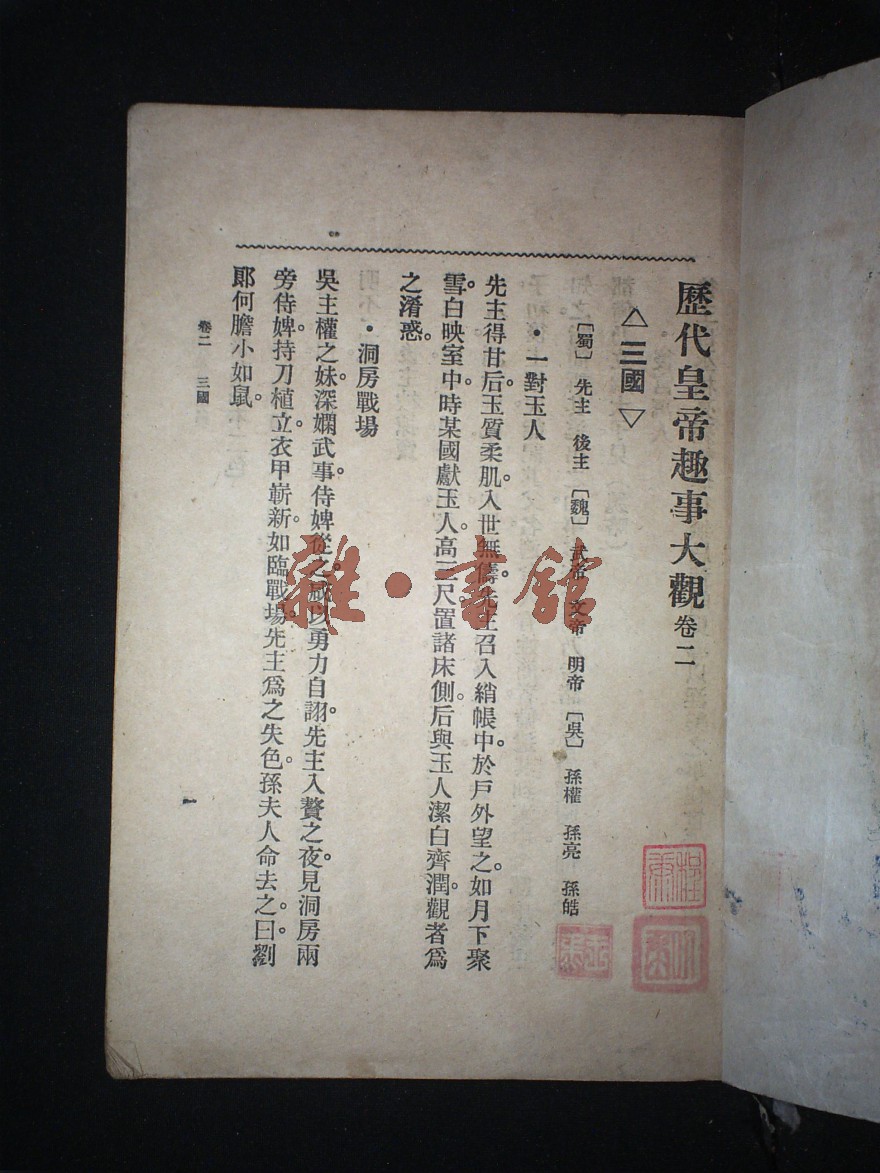 歷代皇帝趣事大觀 卷二
△三國▽
〔蜀〕 先主 後主 〔魏〕 武帝 文帝 明帝 〔吳〕 孫權 孫亮 孫皓
•一對玉人
先主得甘后。玉質柔肌。入世無儔。先主召入綃帳中。於戶外望之。如月下聚
雪。白映室中。時某國獻玉人。高三尺。置諸床側。后與玉人潔白齊潤。觀者爲
之淆惑。
•洞房戰場
吳主權之妹。深嫻武事。侍婢從之。咸以勇力自詡。先主入贅之夜。見洞房兩
旁侍婢。持刀植立。衣甲嶄新。如臨戰場。先主爲之失色。孫夫人命去之。曰。劉
郞何膽小如鼠。
卷二 三國
一
雜•書館